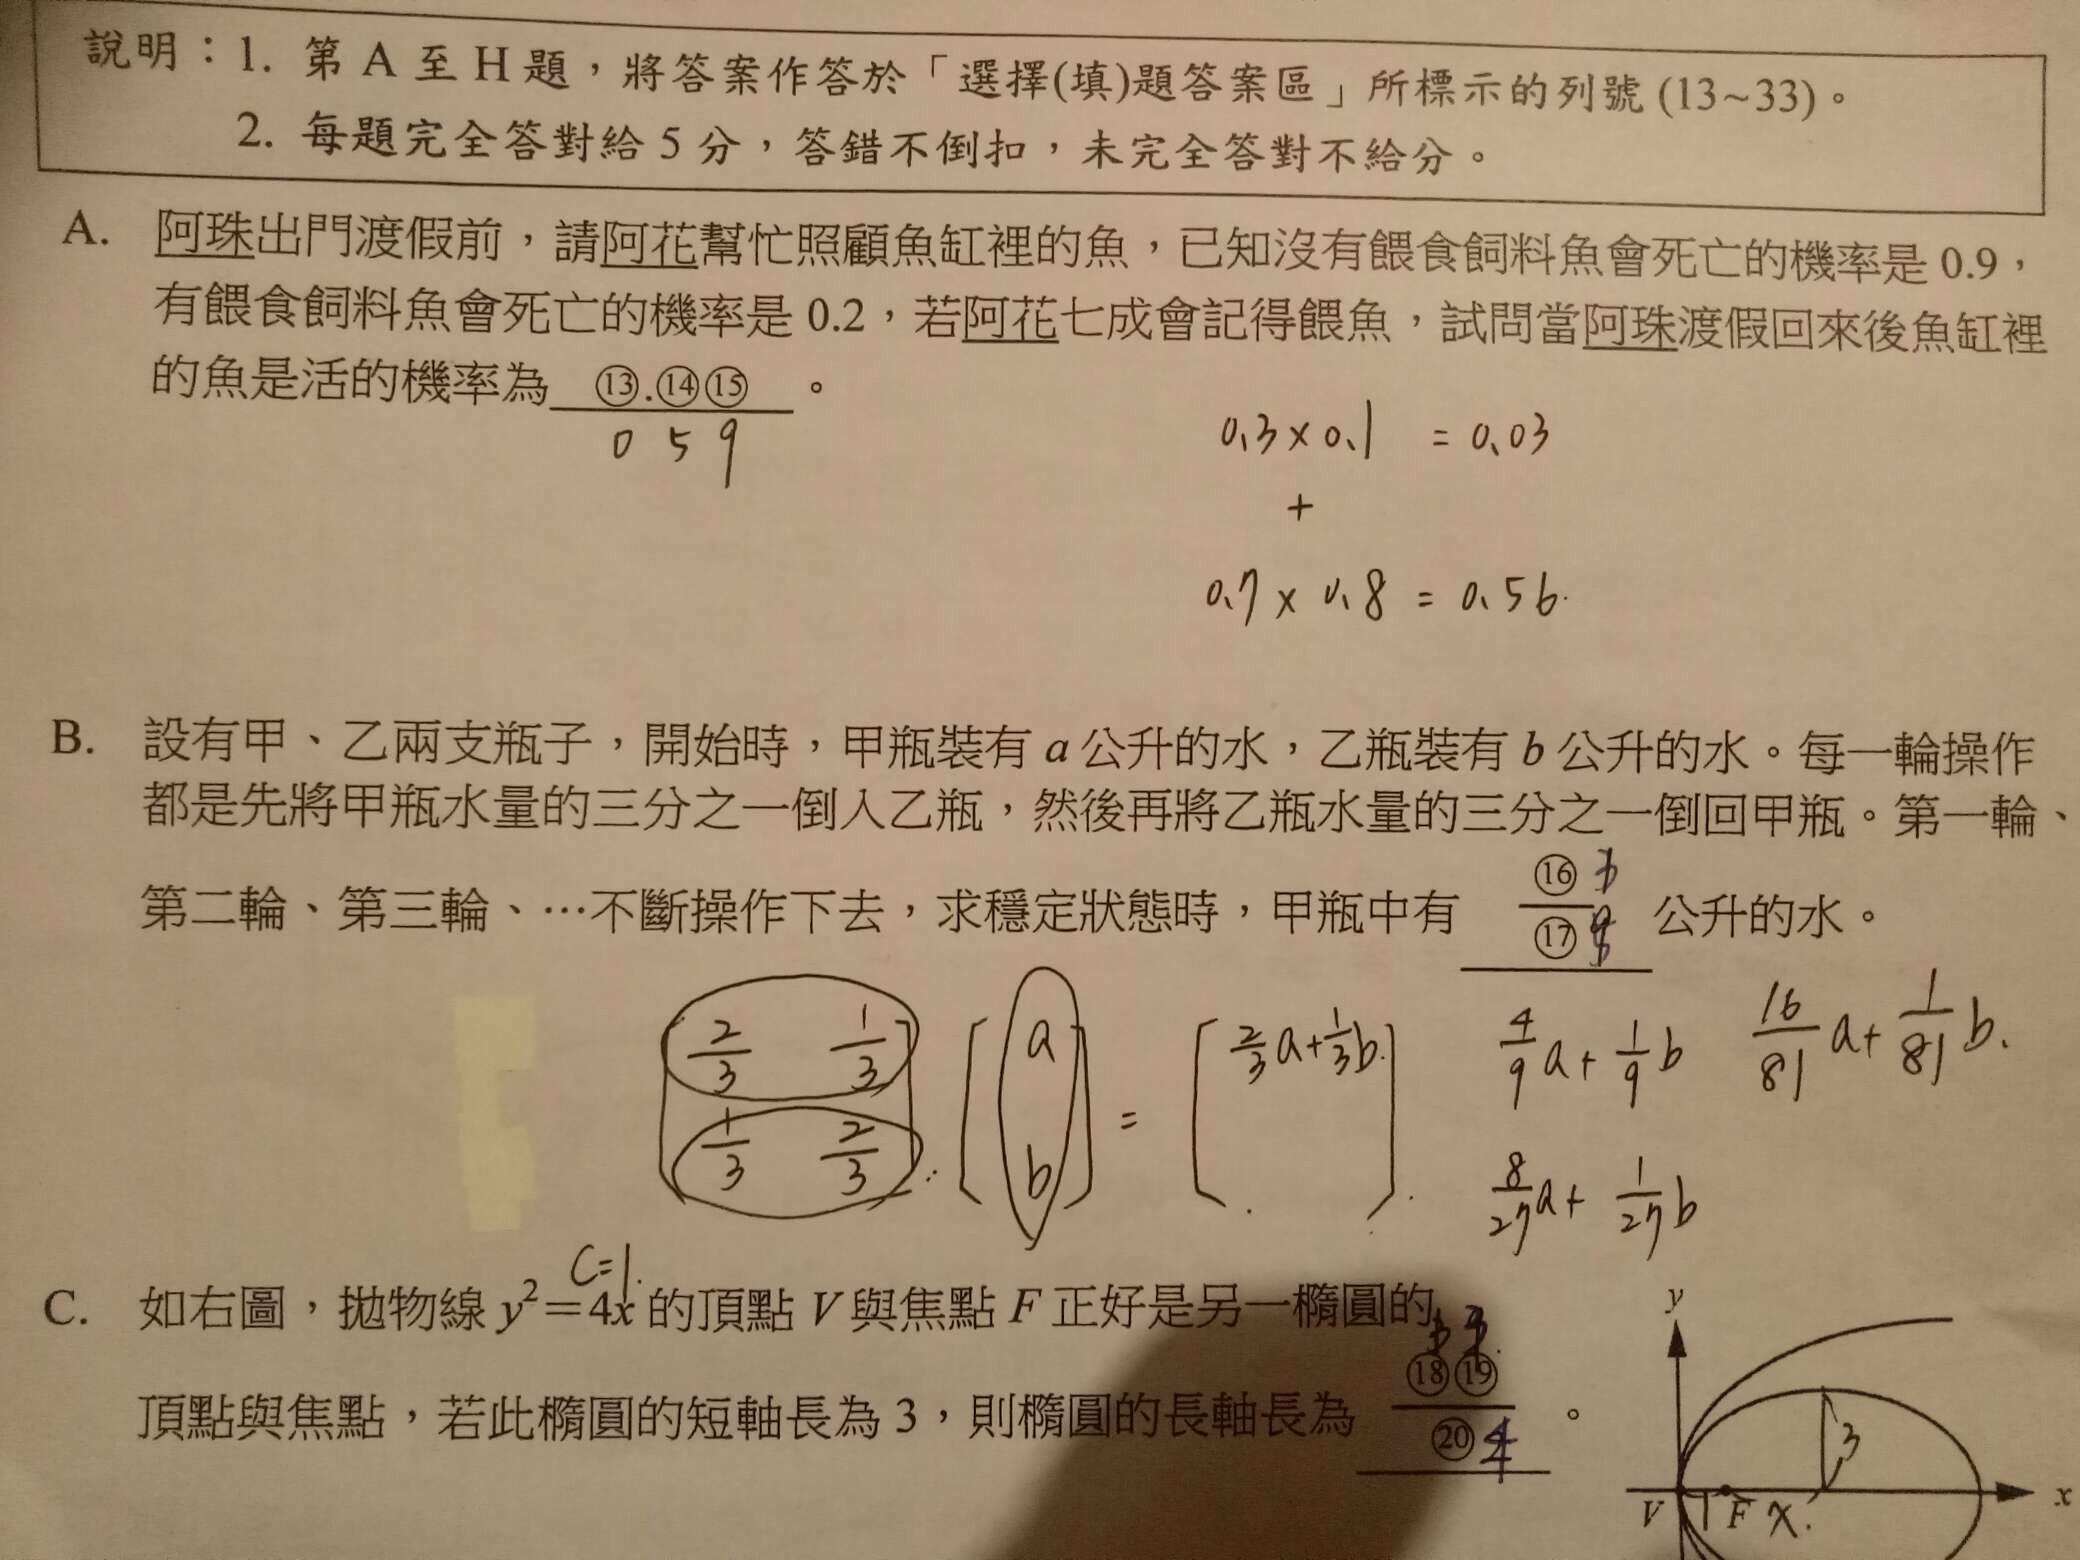 說明：1. 第 A 至 H 題，將答案作答於「選擇(填)題答案區」所標示的列號 (13~33)。
2. 每題完全答對給 5 分，答錯不倒扣，未完全答對不給分。
A. 阿珠出門渡假前，請阿花幫忙照顧魚缸裡的魚，已知沒有餵食飼料魚會死亡的機率是 0.9，
有餵食飼料魚會死亡的機率是 0.2，若阿花七成會記得餵魚，試問當阿珠渡假回來後魚缸裡
的魚是活的機率為 ⑬.⑭⑮ 。
0 5 9
0.3 × 0.1 = 0.03
+
0.7 × 0.8 = 0.56
B. 設有甲、乙兩支瓶子，開始時，甲瓶裝有 a 公升的水，乙瓶裝有 b 公升的水。每一輪操作
都是先將甲瓶水量的三分之一倒入乙瓶，然後再將乙瓶水量的三分之一倒回甲瓶。第一輪、
第二輪、第三輪、…不斷操作下去，求穩定狀態時，甲瓶中有 ⑯/⑰ 公升的水。
[2/3 1/3] [a] = [2/3 a + 1/3 b] 4/9 a + 1/9 b 16/81 a + 1/81 b
[1/3 2/3] [b] 8/27 a + 1/27 b
C=1
C. 如右圖，拋物線 y² = 4x 的頂點 V 與焦點 F 正好是另一橢圓的
頂點與焦點，若此橢圓的短軸長為 3，則橢圓的長軸長為 ⑱⑲/⑳ 。
4
y
3
V 1 F x
x